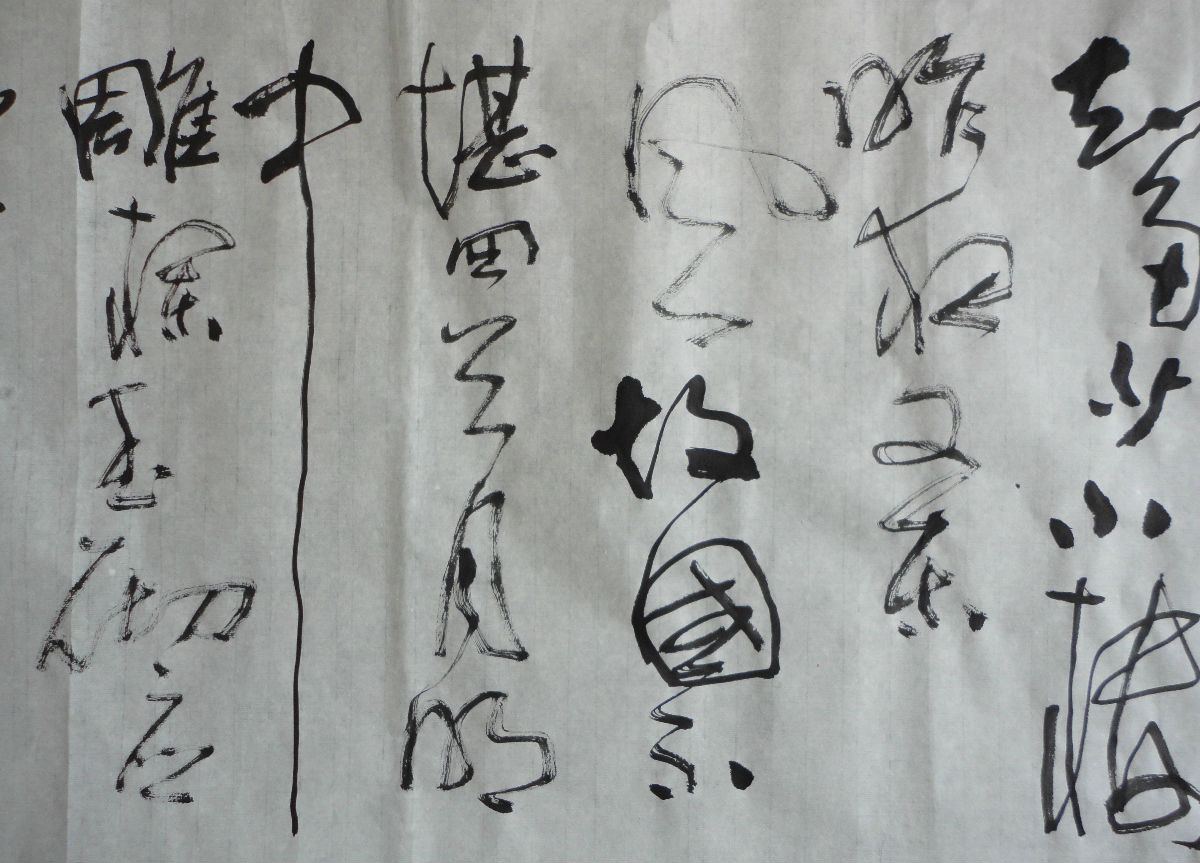 知多少小樓
昨夜又東
風故國不
堪回首月明
中
雕欄玉砌应